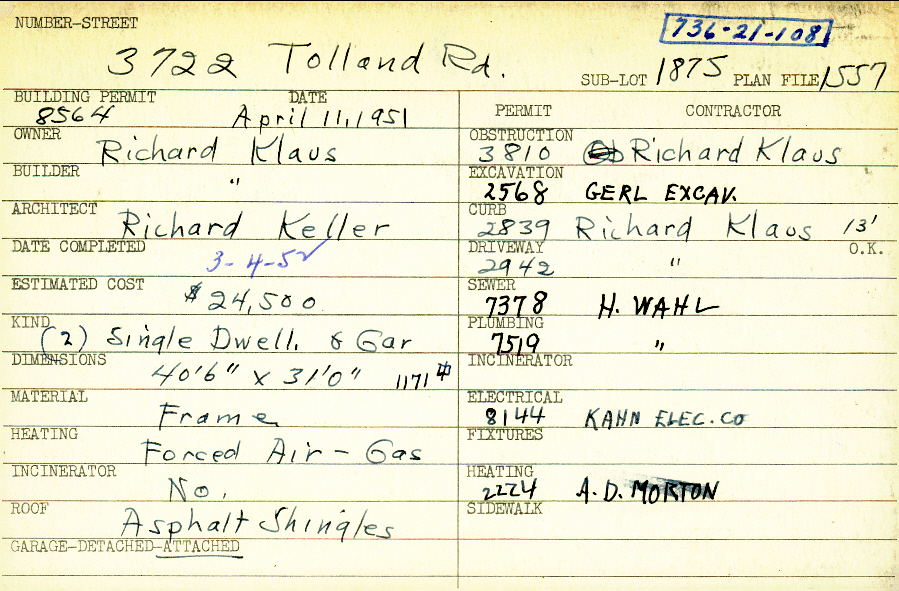 NUMBER-STREET
736-21-108
3722 Tolland Rd.
SUB-LOT 1875 PLAN FILE 1557
BUILDING PERMIT DATE
8564 April 11, 1951
OWNER
Richard Klaus
BUILDER
"
ARCHITECT
Richard Keller
DATE COMPLETED
3-4-52
ESTIMATED COST
$24,500
KIND
(2) Single Dwell. & Gar
DIMENSIONS
40'6" x 31'0" 1171 #
MATERIAL
Frame
HEATING
Forced Air - Gas
INCINERATOR
No.
ROOF
Asphalt Shingles
GARAGE-DETACHED-ATTACHED
PERMIT CONTRACTOR
OBSTRUCTION
3810 Richard Klaus
EXCAVATION
2568 GERL EXCAV.
CURB
2839 Richard Klaus 13'
DRIVEWAY O.K.
2942 "
SEWER
7378 H. WAHL
PLUMBING
7519 "
INCINERATOR
ELECTRICAL
8144 KAHN ELEC. CO
FIXTURES
HEATING
2224 A. D. MORTON
SIDEWALK